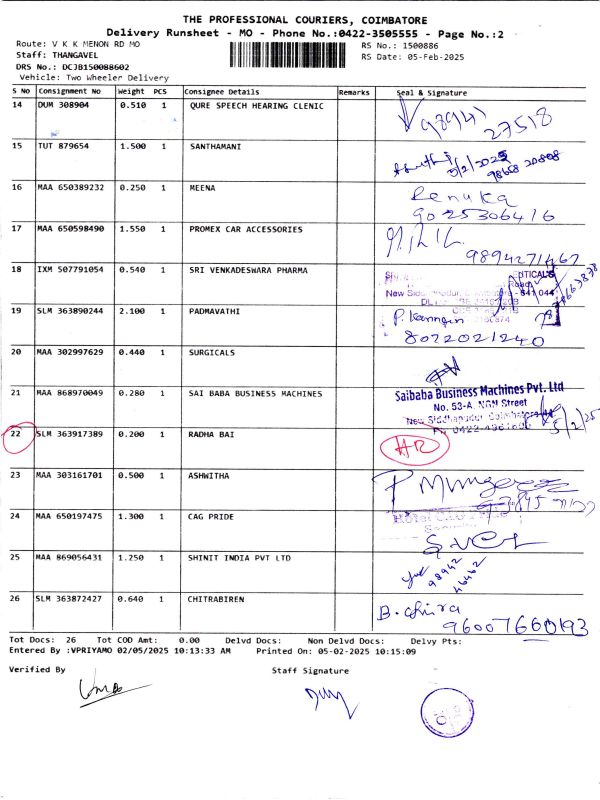 THE PROFESSIONAL COURIERS, COIMBATORE
Delivery Runsheet - MO - Phone No.:0422-3505555 - Page No.:2
Route: V K K MENON RD MO RS No.: 1500886
Staff: THANGAVEL RS Date: 05-Feb-2025
DRS No.: DCJB150088602
Vehicle: Two Wheeler Delivery
S No Consignment No Weight PCS Consignee Details Remarks Seal & Signature
14 DUM 308904 0.510 1 QURE SPEECH HEARING CLENIC
98941 27518
15 TUT 879654 1.500 1 SANTHAMANI
5/2/2025
98658 20808
16 MAA 650389232 0.250 1 MEENA Renuka
9025306416
17 MAA 650598490 1.550 1 PROMEX CAR ACCESSORIES
9894271467
18 IXM 507791054 0.540 1 SRI VENKADESWARA PHARMA
Road
New Sidd - 641 044
19 SLM 363890244 2.100 1 PADMAVATHI P. Kannan
8022021240
20 MAA 302997629 0.440 1 SURGICALS
21 MAA 868970049 0.280 1 SAI BABA BUSINESS MACHINES Saibaba Business Machines Pvt. Ltd
No. 53-A, NGN Street
New Siddhapudur, Coimbatore
5/2/25
22 SLM 363917389 0.200 1 RADHA BAI HR
23 MAA 303161701 0.500 1 ASHWITHA
24 MAA 650197475 1.300 1 CAG PRIDE
25 MAA 869056431 1.250 1 SHINIT INDIA PVT LTD
98942
46462
26 SLM 363872427 0.640 1 CHITRABIREN B. chira
96007660193
Tot Docs: 26 Tot COD Amt: 0.00 Delvd Docs: Non Delvd Docs: Delvy Pts:
Entered By :VPRIYAMO 02/05/2025 10:13:33 AM Printed On: 05-02-2025 10:15:09
Verified By Staff Signature